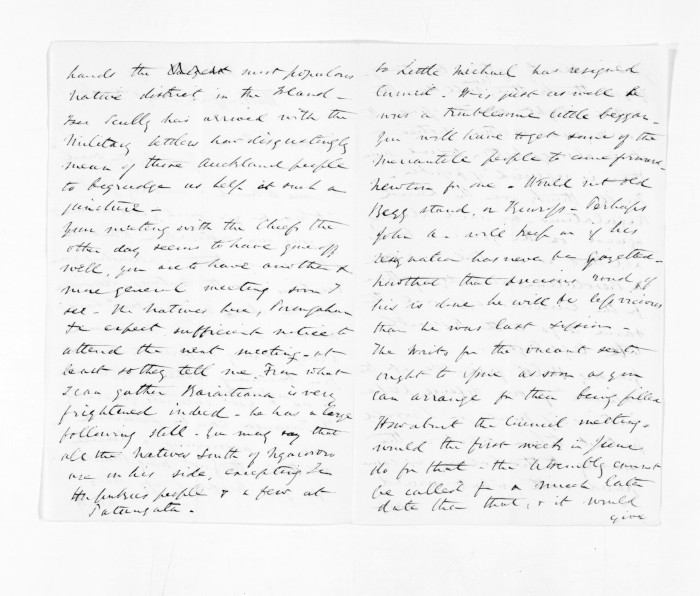 hands the most populous
native district in the Island -
Scully has arrived with the
Military settlers how disgustingly
mean of those Auckland people
to begrudge us help at such a
juncture -
Your meeting with the Chiefs the
other day seems to have gone off
well, you are to have another &
more general meeting soon I
see - The Natives here, Porangahau
&c expect sufficient notice to
attend the next meeting - at
least so they tell me. From what
I can gather Karaitiana is very
frightened indeed - he has a large
following still - You may say that
all the Natives South of Ngaruroro
are on his side, excepting Te
Hapuku's people & a few at
Patangata -
So Little Michael has resigned
Council - It is just as well he
was a troublesome little beggar -
You will have to get some of the
Mercantile people to come forward
Newton for one - Would not old
Begg stand, or - Perhaps
John A - will keep on if his
resignation has never been gazetted -
now that that precious road of
his is done he will be less vicious
than he was last session -
The Writs for the vacant seats
ought to issue as soon as you
can arrange for them being filled
How about the Council meeting -
would the first week in June
do for that - the Assembly cannot
be called for a much later
date than that, & it would
give